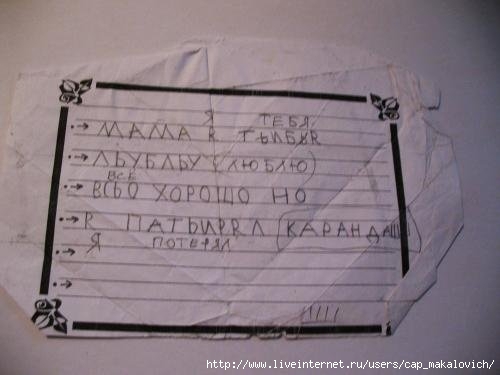 Я ТЕБЯ
МАМА R ТЬИБЯR
ЛЬУБЛЬУ (ЛЮБЛЮ)
ВСЁ
ВСЬО ХОРОШО НО
R ПАТЬИRRЛ (КАРАНДАШ)
Я ПОТЕРЯЛ
http://www.liveinternet.ru/users/cap_makalovich/